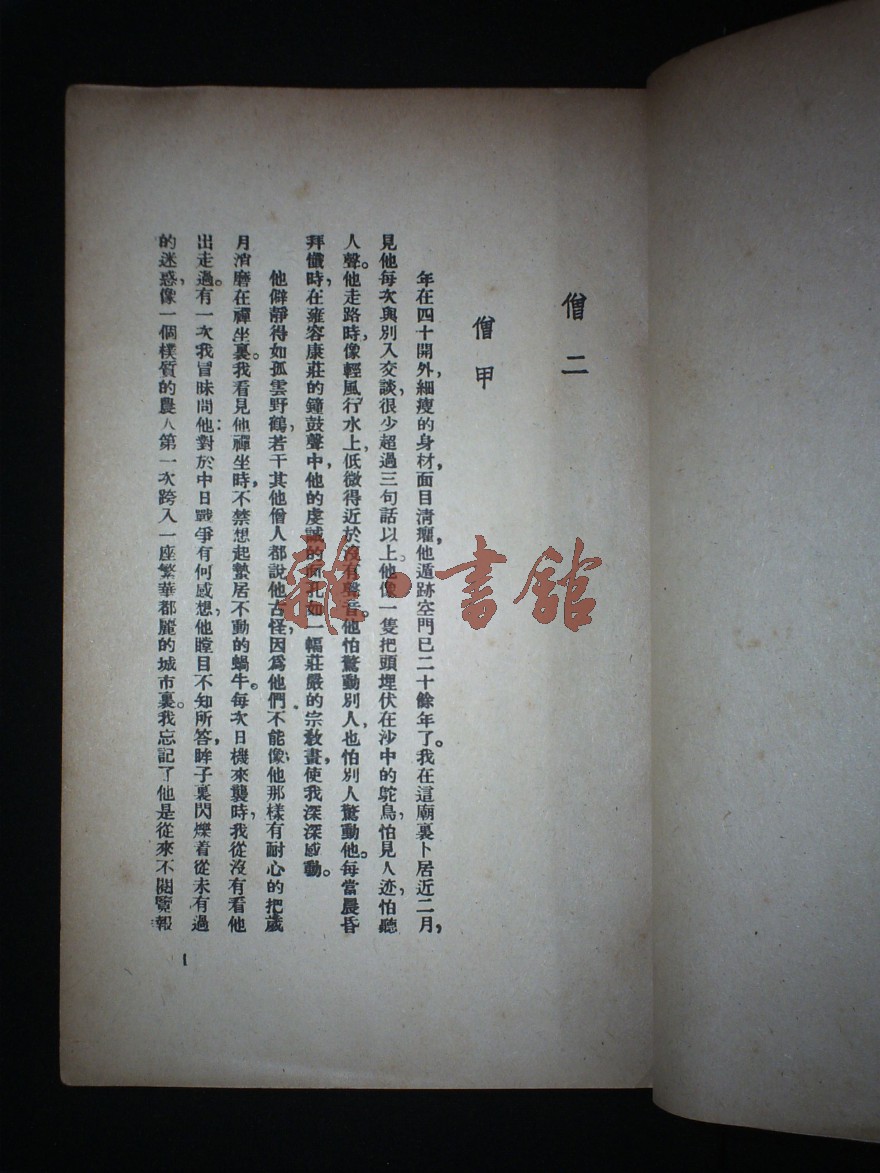 僧二
僧甲
年在四十開外，細瘦的身材，面目清癯，他遁跡空門已二十餘年了。我在這廟裏卜居近二月，
見他每次與別入交談，很少超過三句話以上。他像一隻把頭埋伏在沙中的鴕鳥，怕見人迹，怕聽
人聲。他走路時，像輕風行水上，低微得近於沒有聲音。他怕驚動別人，也怕別人驚動他。每當晨昏
拜懺時，在雍容康莊的鐘鼓聲中，他的虔誠的面孔如一幅莊嚴的宗教畫，使我深深感動。
他僻靜得如孤雲野鶴，若干其他僧人都說他古怪，因爲他們不能像他那樣有耐心的把歲
月消磨在禪坐裏。我看見他禪坐時，不禁想起蟄居不動的蝸牛。每次日機來襲時，我從沒有看他
出走過。有一次我冒昧問他：對於中日戰爭有何感想，他瞠目不知所答，眸子裏閃爍着從未有過
的迷惑，像一個樸質的農人第一次跨入一座繁華都麗的城市裏。我忘記了他是從來不閱覽報
1
雜·書館